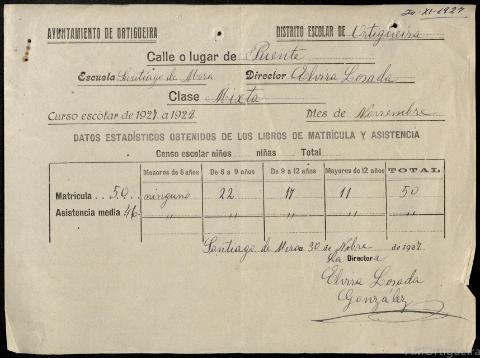 30-XI-1927
AYUNTAMIENTO DE ORTIGUEIRA DISTRITO ESCOLAR DE Ortigueira
Calle o lugar de Puente
Escuela Santiago de Mera Director Elvira Losada
Clase Mixta
Curso escolar de 1927 a 1928 Mes de Noviembre
DATOS ESTADÍSTICOS OBTENIDOS DE LOS LIBROS DE MATRÍCULA Y ASISTENCIA
Censo escolar niños niñas Total
Menores de 6 años De 6 a 9 años De 9 a 12 años Mayores de 12 años TOTAL
Matrícula . . 50 . . ninguno 22 17 11 50
Asistencia media 46. " " " " "
Santiago de Mera 30 de Nobre de 1927
La Directora
Elvira Losada
González